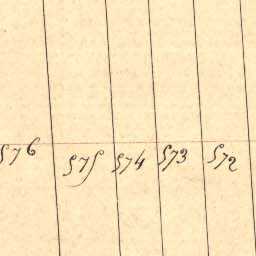 576 575 574 573 572